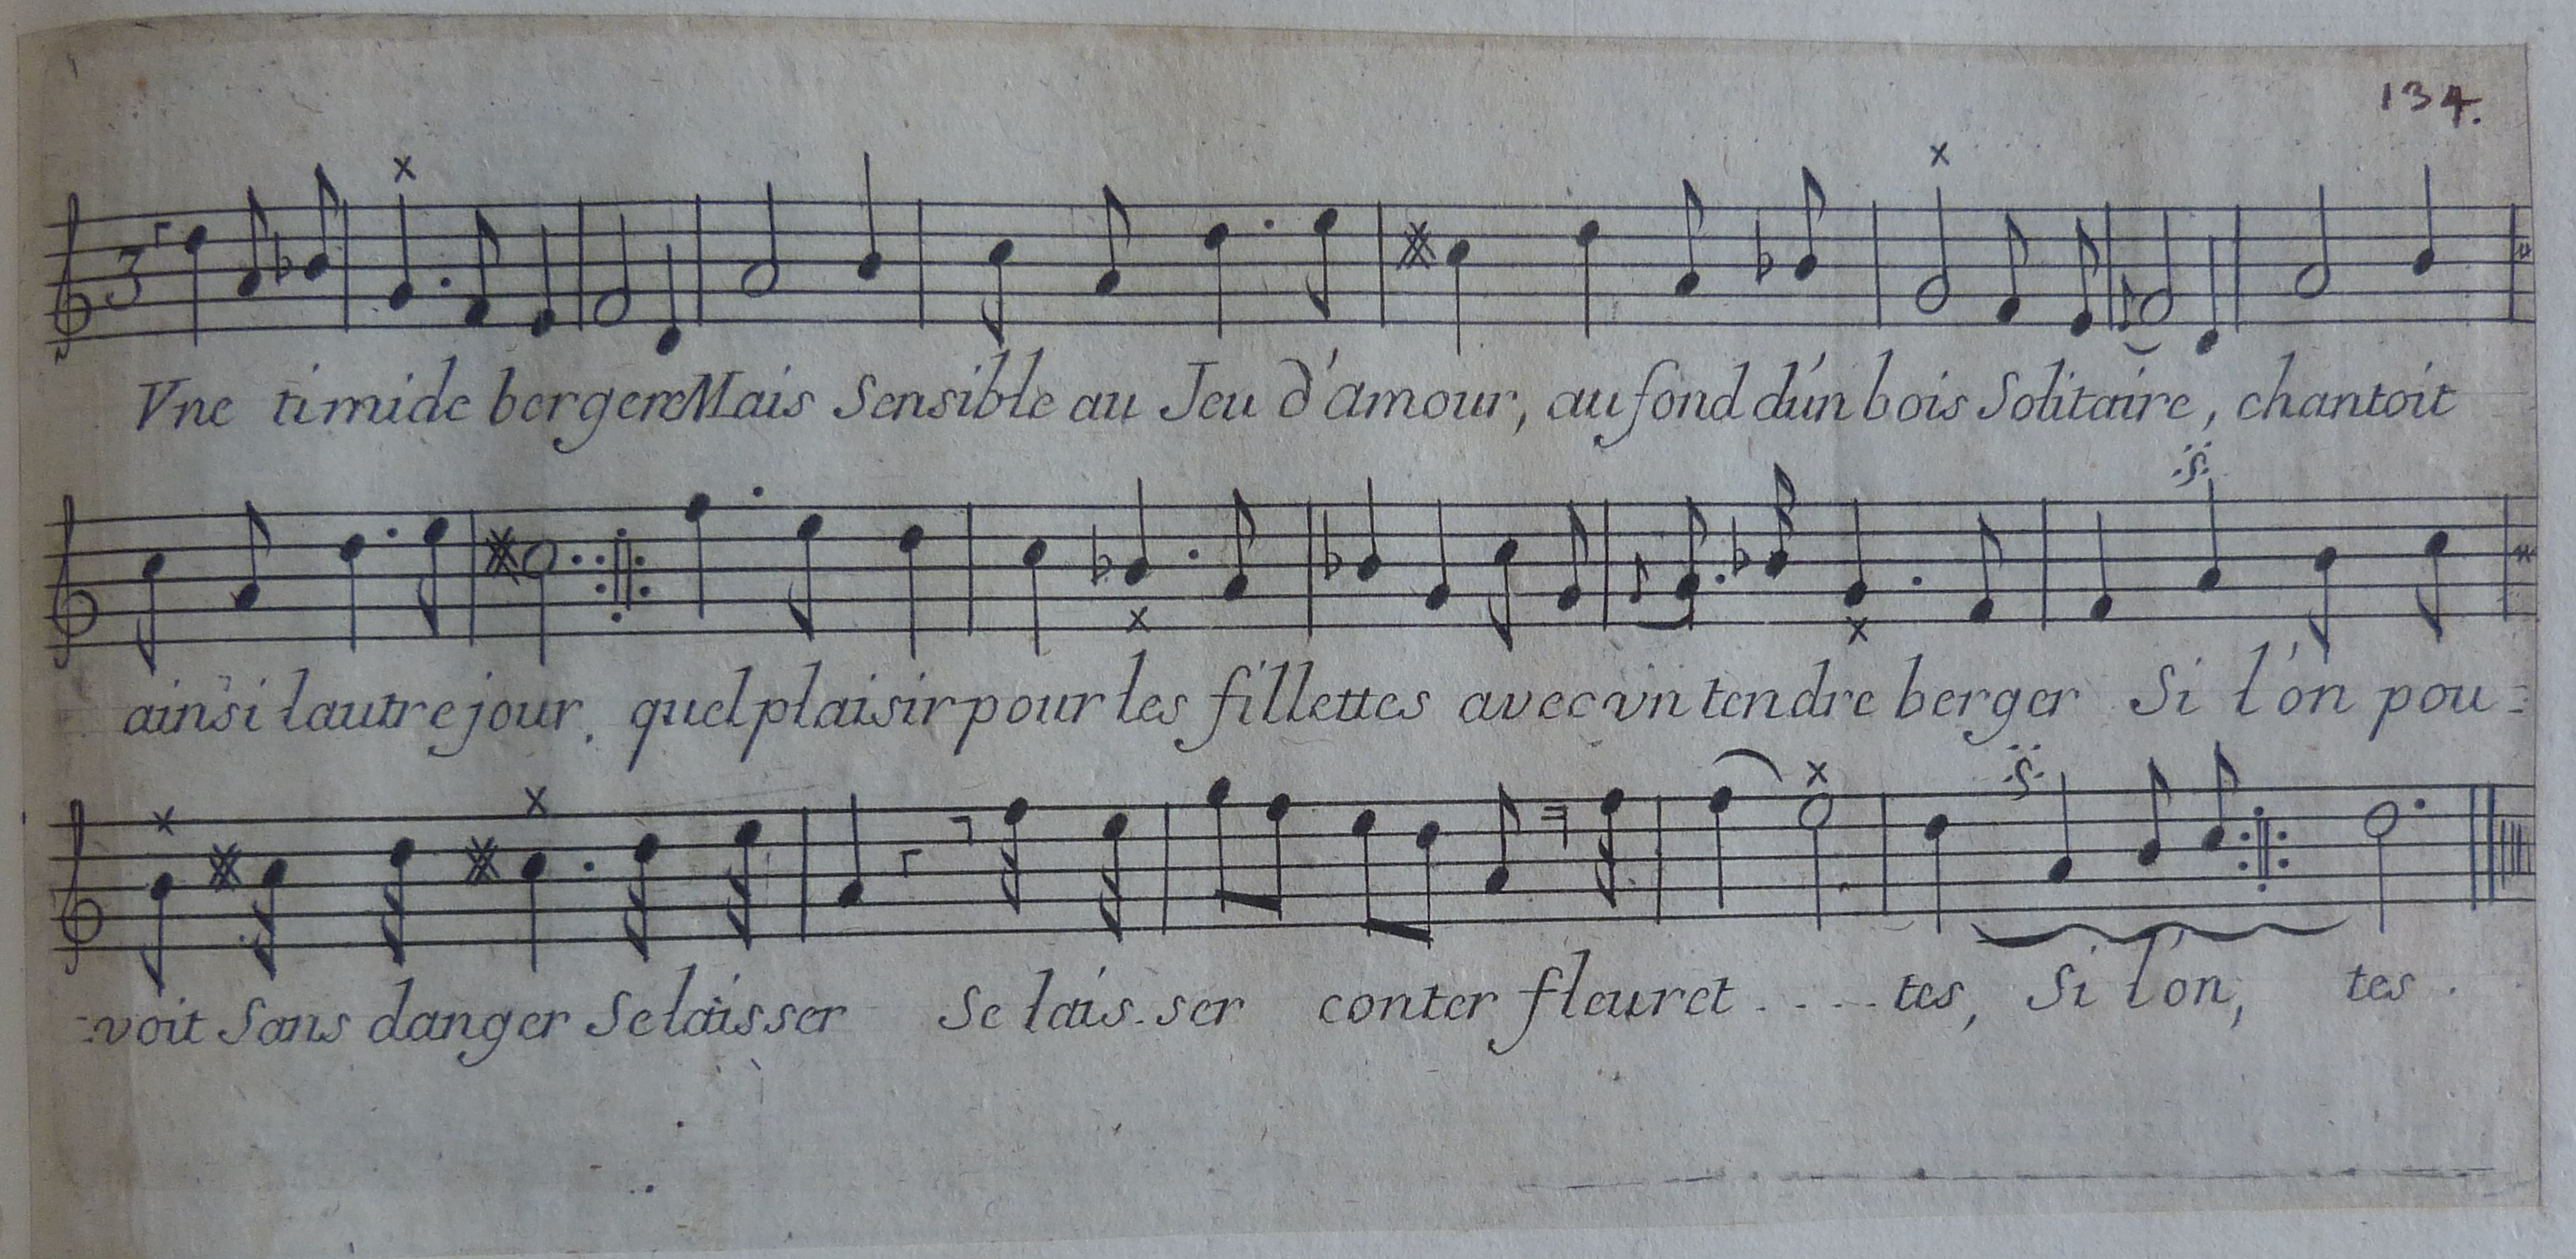 134.
3
Vne timide bergere Mais Sensible au Jeu d'amour, au fond d'un bois Solitaire, chantoit
ainsi lautre jour. quel plaisir pour les fillettes avec vn tendre berger Si l'on pou=
=voit Sans danger Se laisser Se lais-ser conter fleuret.....tes, Si l'on, tes.